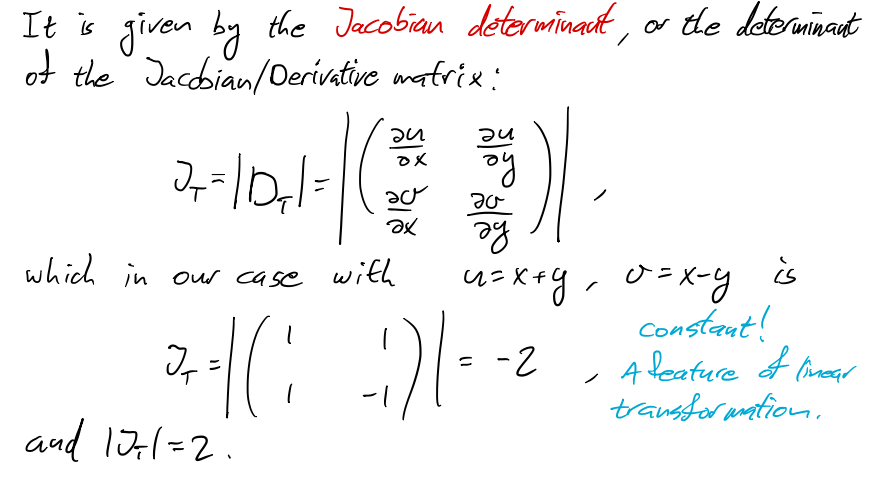 It is given by the Jacobian determinant, or the determinant
of the Jacobian/Derivative matrix:
J_T = |D_T| = |( ∂u/∂x ∂u/∂y
∂v/∂x ∂v/∂y )| ,
which in our case with u=x+y, v=x-y is
constant!
J_T = |( 1 1
1 -1 )| = -2 , A feature of linear
transformation.
and |J_T|=2.